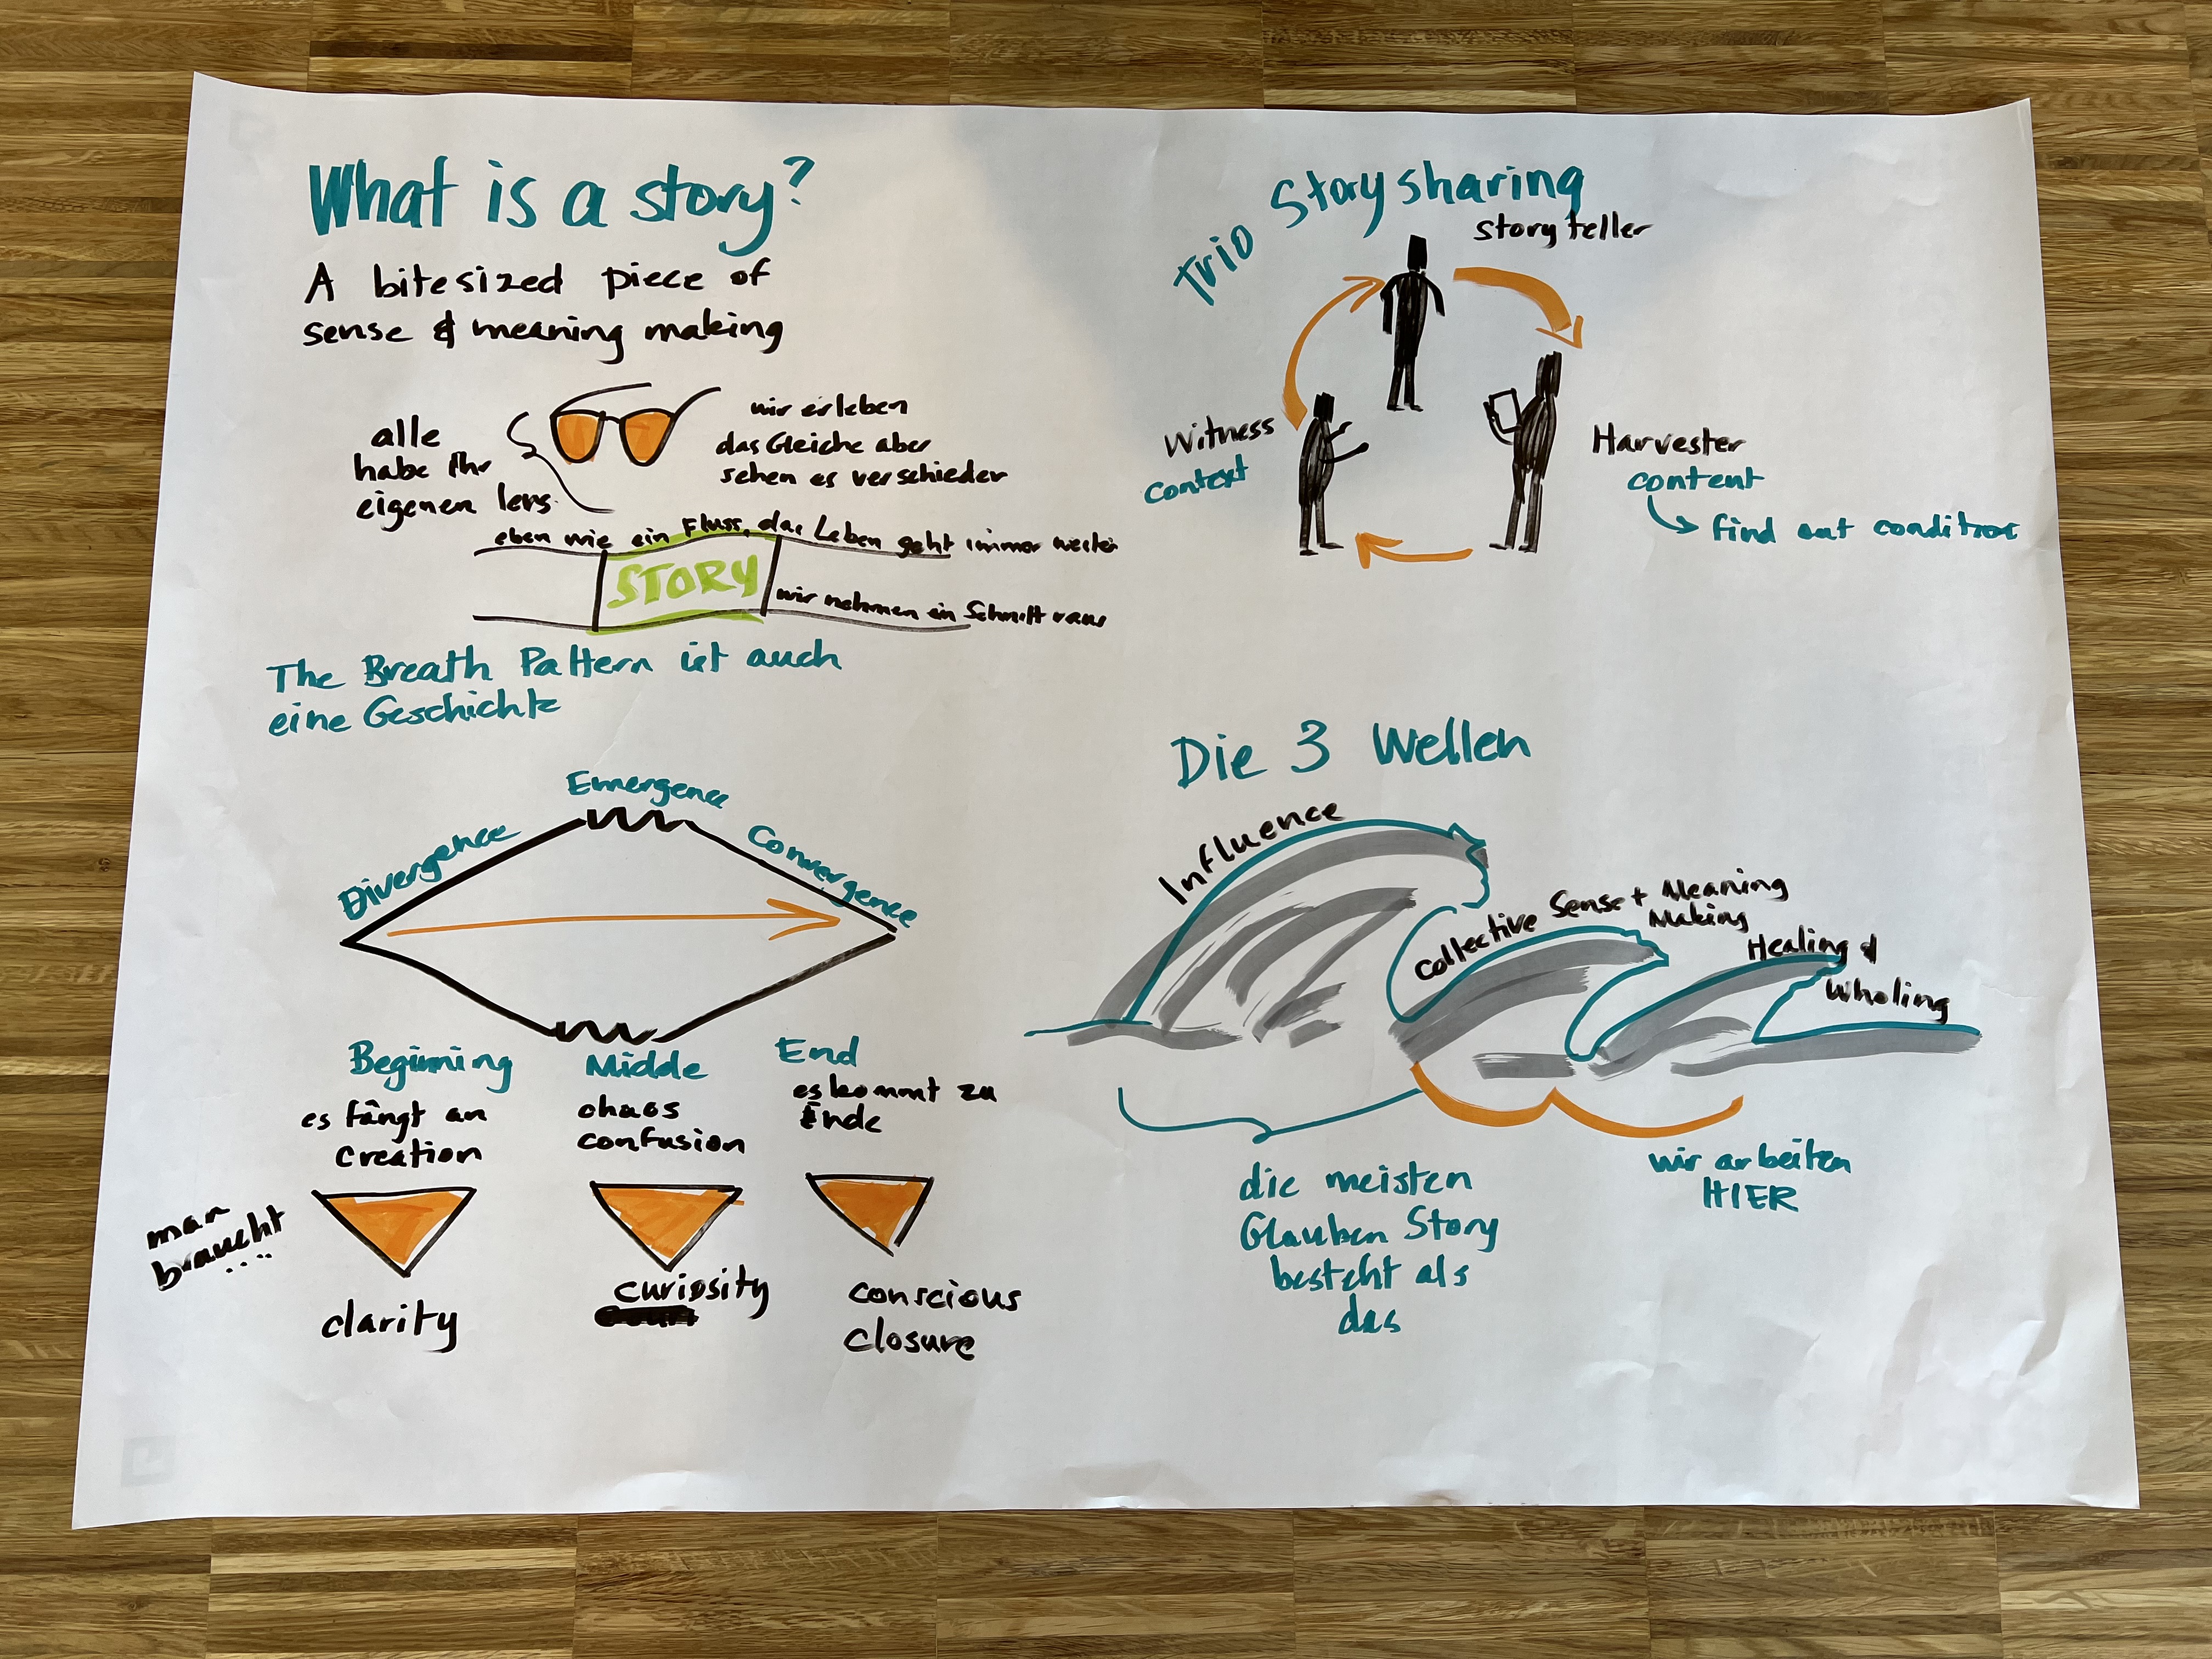 What is a story?
A bitesized piece of
sense & meaning making
alle
habe Ihr
eigenen lens
wir erleben
das Gleiche aber
sehen es verschieden
eben wie ein Fluss, das Leben geht immer weiter
STORY
wir nehmen ein Schnitt raus
The Breath Pattern ist auch
eine Geschichte
Divergence
Emergence
Convergence
Beginning
es fängt an
Creation
Midde
chaos
confusion
End
es kommt zu
Ende
man
braucht
...
clarity
curiosity
conscious
closure
Trio Story sharing
Story teller
Witness
context
Harvester
content
find out condition
Die 3 Wellen
Influence
Collective Sense + Meaning
Making
Healing &
Wholing
die meisten
Glauben Story
besteht als
das
wir arbeiten
HIER